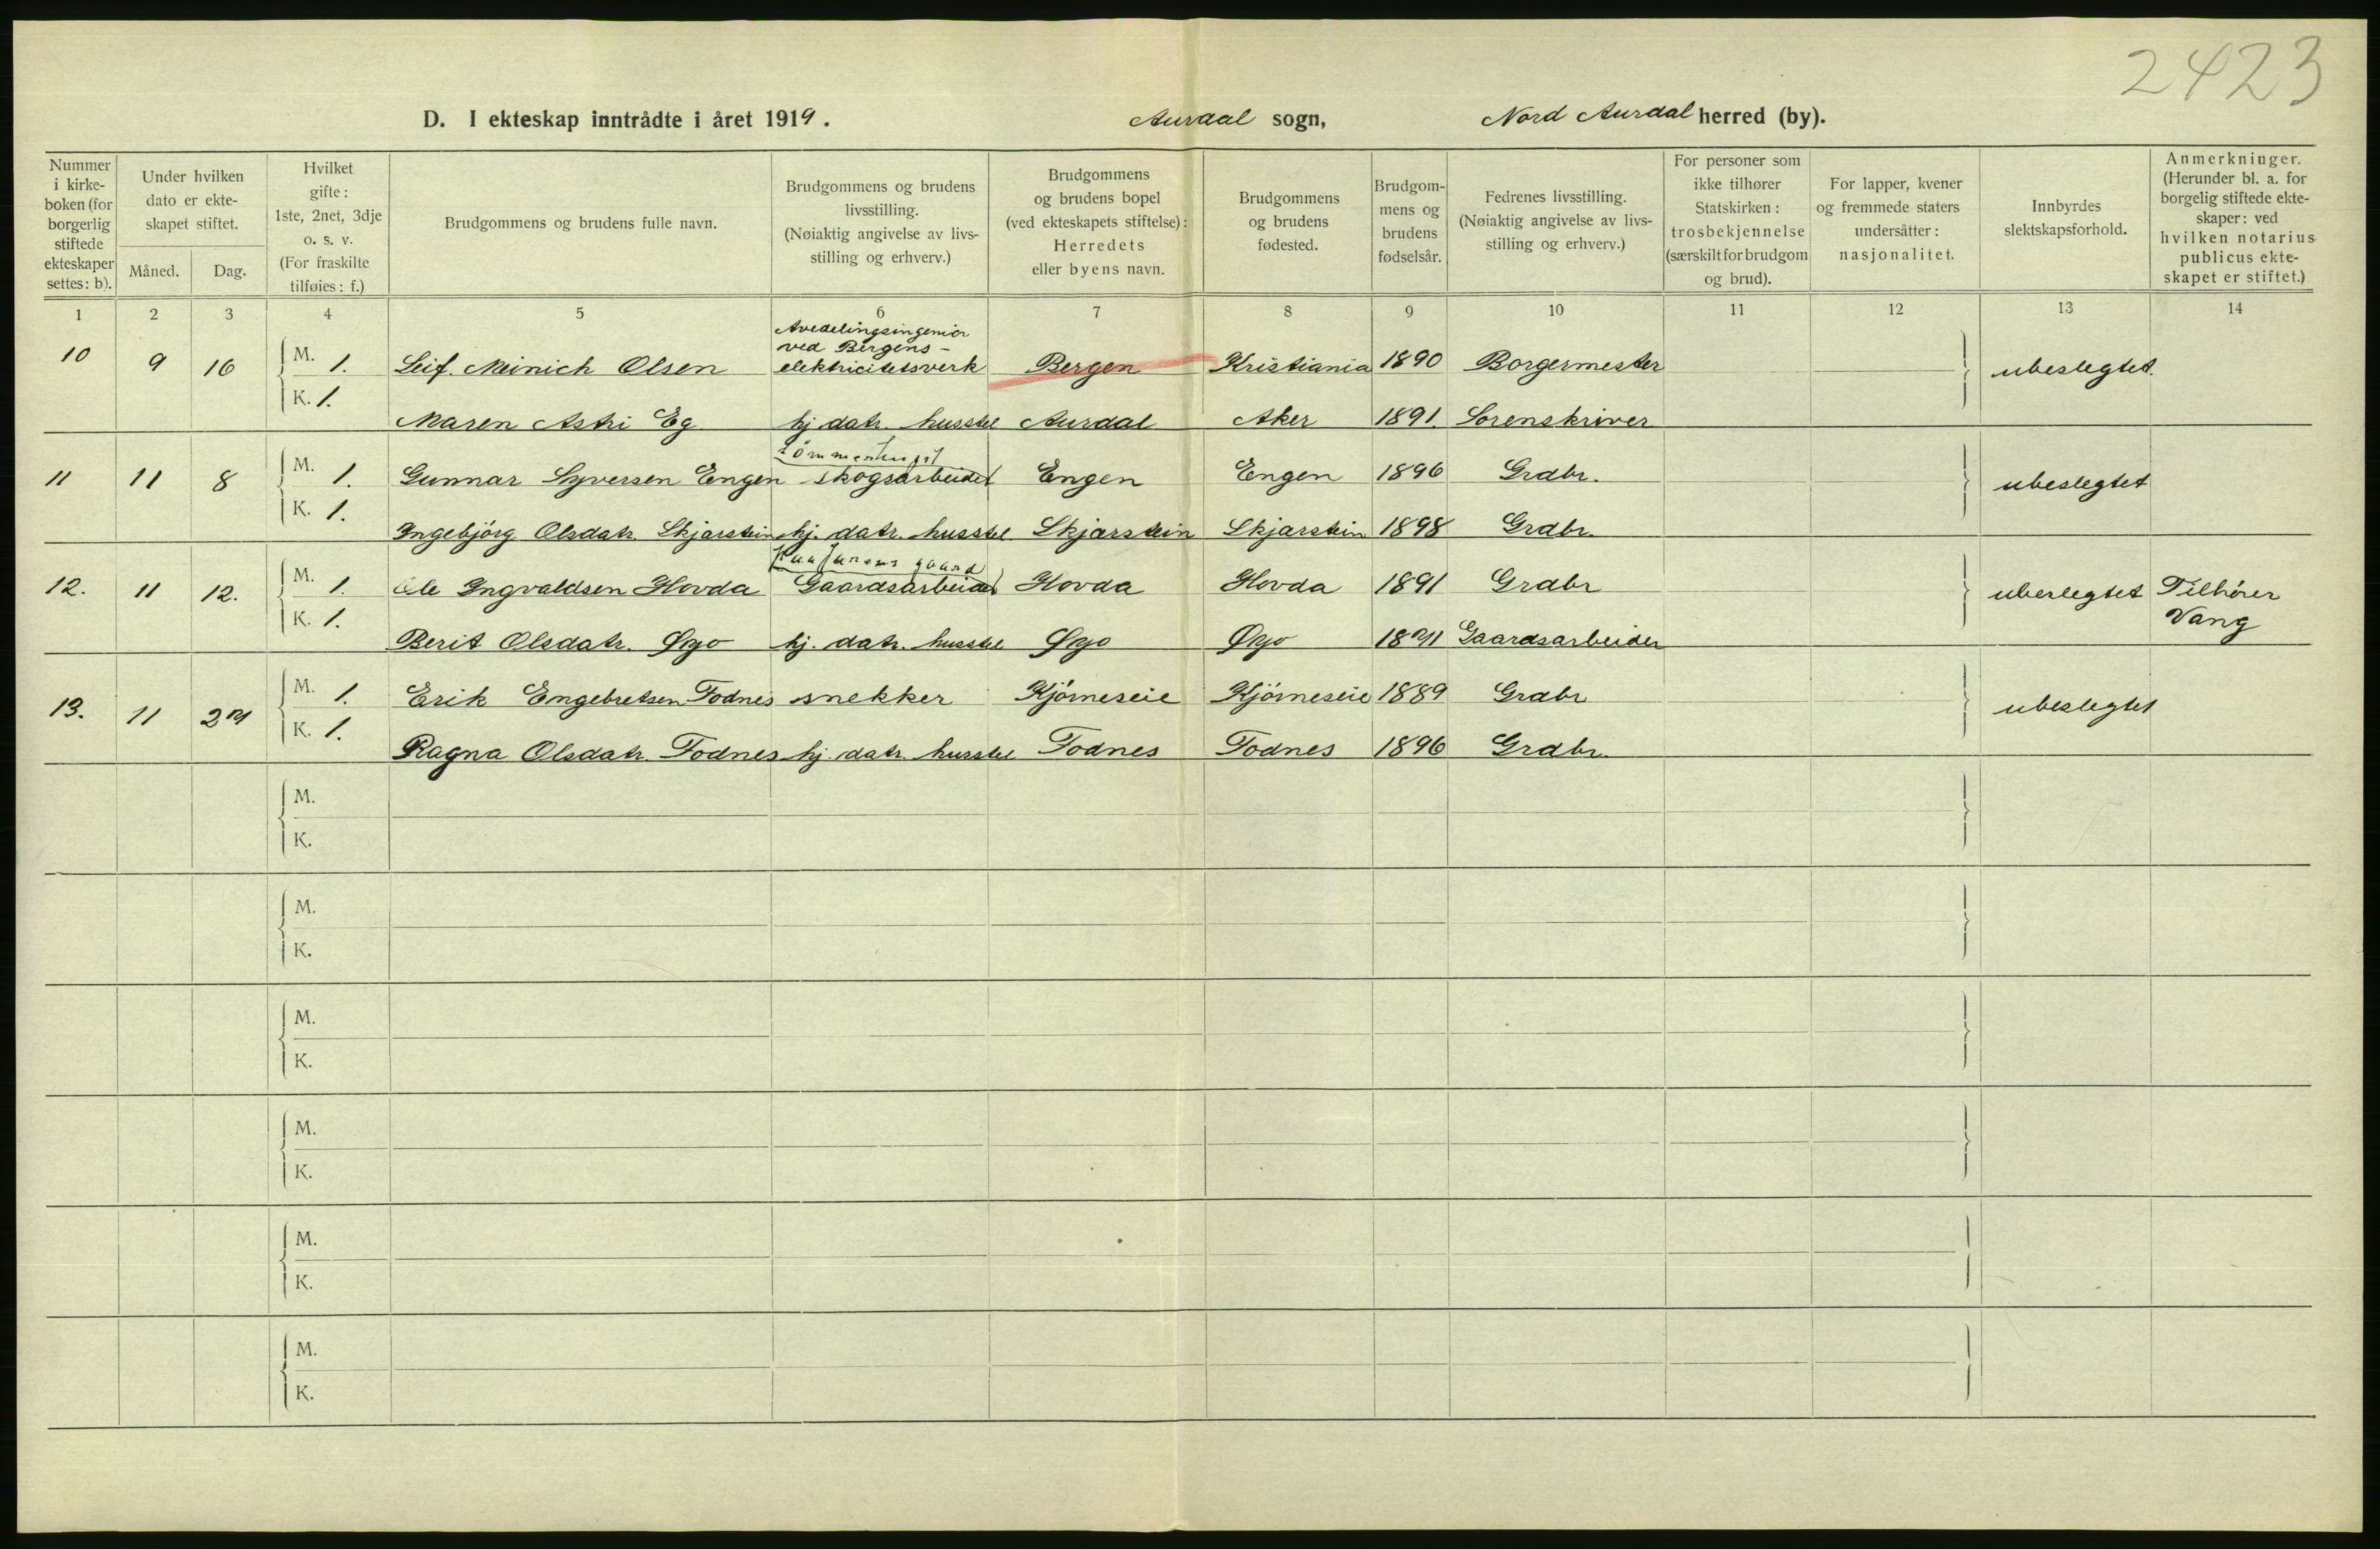 2423
D. I ekteskap inntrådte i året 1919. Aurdal sogn, Nord Aurdal herred (by).
Nummer i kirkeboken (for borgerlig stiftede ekteskaper settes: b).
Under hvilken dato er ekteskapet stiftet.
Måned. Dag.
Hvilket gifte: 1ste, 2net, 3dje o. s. v. (For fraskilte tilføies: f.)
Brudgommens og brudens fulle navn.
Brudgommens og brudens livsstilling. (Nøiaktig angivelse av livsstilling og erhverv.)
Brudgommens og brudens bopel (ved ekteskapets stiftelse): Herredets eller byens navn.
Brudgommens og brudens fødested.
Brudgommens og brudens fødselsår.
Fedrenes livsstilling. (Nøiaktig angivelse av livsstilling og erhverv.)
For personer som ikke tilhører Statskirken: trosbekjennelse (særskilt for brudgom og brud).
For lapper, kvener og fremmede staters undersåtter: nasjonalitet.
Innbyrdes slektskapsforhold.
Anmerkninger. (Herunder bl. a. for borgelig stiftede ekteskaper: ved hvilken notarius publicus ekteskapet er stiftet.)
1 2 3 4 5 6 7 8 9 10 11 12 13 14
Avedelingsingeniør
ved Bergens-
10 9 16 M. 1. Leif. Meinich Olsen elektricitetsverk Bergen Kristiania 1890 Borgermester ubeslegtet.
K. 1. Maren Astri Eg hj. datr. husstel Aurdal Aker 1891. Sorenskriver
11 11 8 M. 1. Gunnar Syversen Engen skogsarbeidet Engen Engen 1896 Grdbr. ubeslegtet
K. 1. Ingebjörg Olsdatr. Skjarstein hj. datr. husstel Skjarstein Skjarstein 1898 Grdbr.
12. 11 12. M. 1. Ole Ingvaldsen Hovda Gaardsarbeider Hovda Hovda 1891 Grdbr ubeslegtet Tilhører
Vang
K. 1. Berit Olsdatr. Øygo hj. datr. husstel Øygo Øygo 1891 Gaardsarbeider
13. 11 27 M. 1. Erik Engebretsen Fodnes snekker Kjörneseie Kjörneseie 1889 Grdbr ubeslegtet
K. 1. Ragna Olsdatr. Fodnes hj. datr. husstel Fodnes Fodnes 1896 Grdbr.
M.
K.
M.
K.
M.
K.
M.
K.
M.
K.
M.
K.